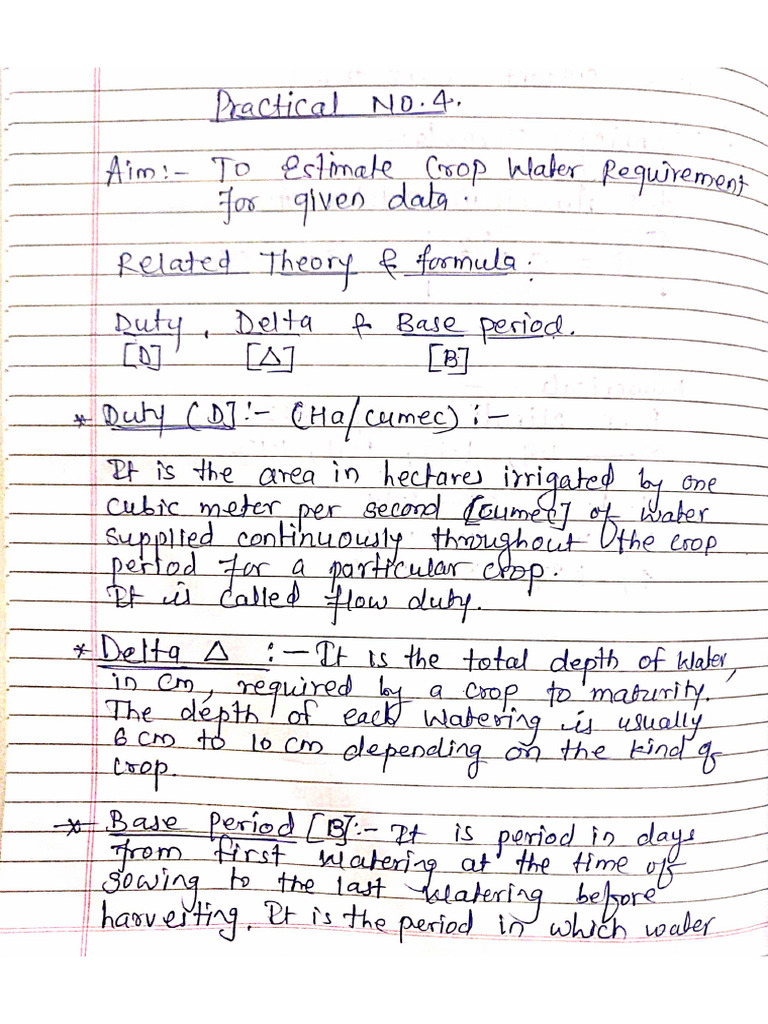 Practical No. 4.
Aim:- To Estimate Crop Water Requirement
for given data.
Related Theory & formula:
Duty, Delta & Base period.
[D] [Δ] [B]
* Duty (D]:- (Ha/cumec):-
It is the area in hectares irrigated by one
cubic meter per second [cumec] of water
supplied continuously throughout the crop
period for a particular crop.
It is called flow duty.
* Delta Δ :- It is the total depth of water,
in cm, required by a crop to maturity.
The depth of each watering is usually
6 cm to 10 cm depending on the kind of
crop.
* Base period [B]:- It is period in days
from first watering at the time of
sowing to the last watering before
harvesting. It is the period in which water